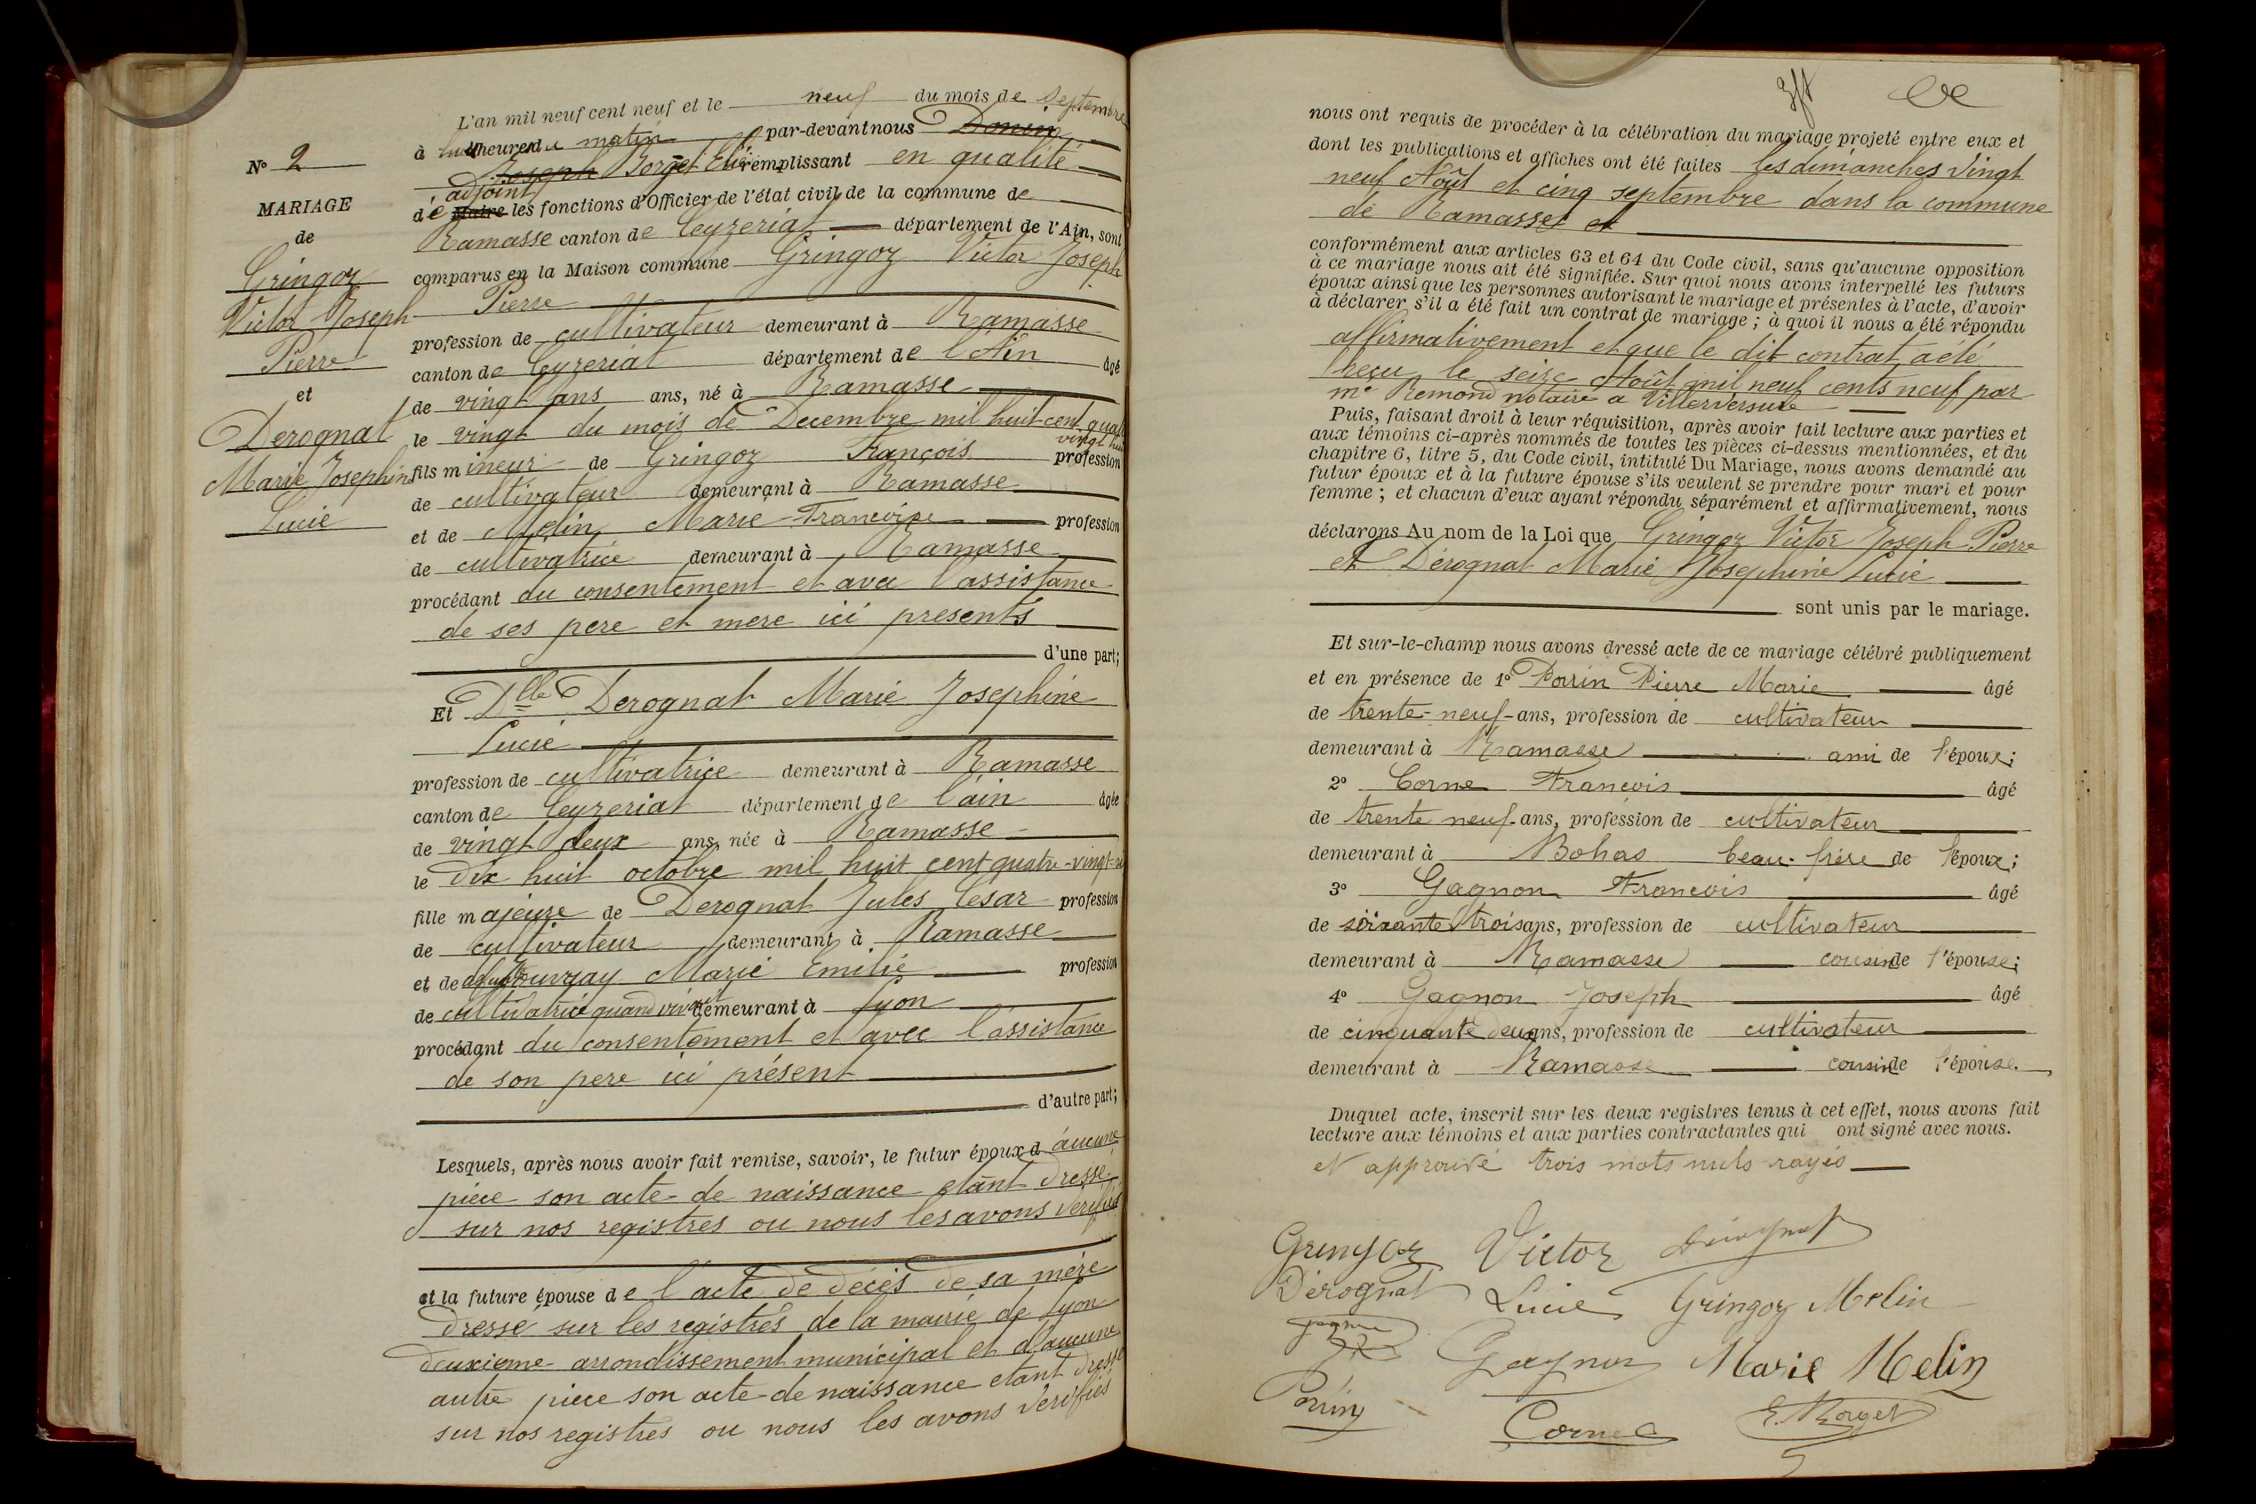 N° 2
MARIAGE
de
Gringoz
Victor Joseph
Pierre
et
Derognat
Marie Josephine
Lucie
L'an mil neuf cent neuf et le neuf du mois de Septembre
à huit heures du matin par-devant nous Donin
Joseph Borget Elie remplissant en qualité
adjoint
de Maire les fonctions d'Officier de l'état civil de la commune de
Ramasse canton de Ceyzeriat département de l'Ain, sont
comparus en la Maison commune Gringoz Victor Joseph
Pierre
profession de cultivateur demeurant à Ramasse
canton de Ceyzeriat département de l'Ain âgé
de vingt ans ans, né à Ramasse
le vingt du mois de Decembre mil huit cent quatre
vingt huit
fils mineur de Gringoz François profession
de cultivateur demeurant à Ramasse
et de Melin Marie Françoise profession
de cultivatrice demeurant à Ramasse
procédant du consentement et avec l'assistance
de ses pere et mere ici presents
d'une part;
Et Dlle Derognat Marie Josephine
Lucie
profession de cultivatrice demeurant à Ramasse
canton de Ceyzeriat département de l'ain âgée
de vingt deux ans, née à Ramasse
le dix huit octobre mil huit cent quatre-vingt-six
fille majeure de Derognat Jules César profession
de cultivateur demeurant à Ramasse
et de Marie Emilie profession
de cultivatrice quand vivait demeurant à Lyon
procédant du consentement et avec l'assistance
de son pere ici présent
d'autre part;
Lesquels, après nous avoir fait remise, savoir, le futur époux d aucune
pièce son acte de naissance etant dressé
sur nos registres ou nous les avons verifiés
et la future épouse de l'acte de décès de sa mère
dressé sur les registres de la mairie de Lyon
deuxieme arrondissement municipal et d'aucune
autre piece son acte de naissance etant dressé
sur nos registres ou nous les avons verifiés
nous ont requis de procéder à la célébration du mariage projeté entre eux et
dont les publications et affiches ont été faites les dimanches vingt
neuf Août et cinq septembre dans la commune
de Ramasse et
conformément aux articles 63 et 64 du Code civil, sans qu'aucune opposition
à ce mariage nous ait été signifiée. Sur quoi nous avons interpellé les futurs
époux ainsi que les personnes autorisant le mariage et présentes à l'acte, d'avoir
à déclarer s'il a été fait un contrat de mariage ; à quoi il nous a été répondu
affirmativement et que le dit contrat a été
reçu le seize Août mil neuf cents neuf par
me Remond notaire a Villereversure
Puis, faisant droit à leur réquisition, après avoir fait lecture aux parties et
aux témoins ci-après nommés de toutes les pièces ci-dessus mentionnées, et du
chapitre 6, titre 5, du Code civil, intitulé Du Mariage, nous avons demandé au
futur époux et à la future épouse s'ils veulent se prendre pour mari et pour
femme ; et chacun d'eux ayant répondu séparément et affirmativement, nous
déclarons Au nom de la Loi que Gringoz Victor Joseph Pierre
et Dérognat Marie Josephine Lucie
sont unis par le mariage.
Et sur-le-champ nous avons dressé acte de ce mariage célébré publiquement
et en présence de 1° Perrin Pierre Marie âgé
de trente-neuf ans, profession de cultivateur
demeurant à Ramasse ami de l'époux;
2° Corne François âgé
de trente neuf ans, profession de cultivateur
demeurant à Bohas beau-frère de l'époux;
3° Gagnon François âgé
de soixante trois ans, profession de cultivateur
demeurant à Ramasse cousin de l'épouse;
4° Gagnon Joseph âgé
de cinquante deux ans, profession de cultivateur
demeurant à Ramasse cousin de l'épouse.
Duquel acte, inscrit sur les deux registres tenus à cet effet, nous avons fait
lecture aux témoins et aux parties contractantes qui ont signé avec nous.
et approuvé trois mots nuls rayés
Gringoz Victor Dérognat
Dérognat Lucie Gringoz Melin
Gagnon Marie Melin
Perrin Corne E. Borget